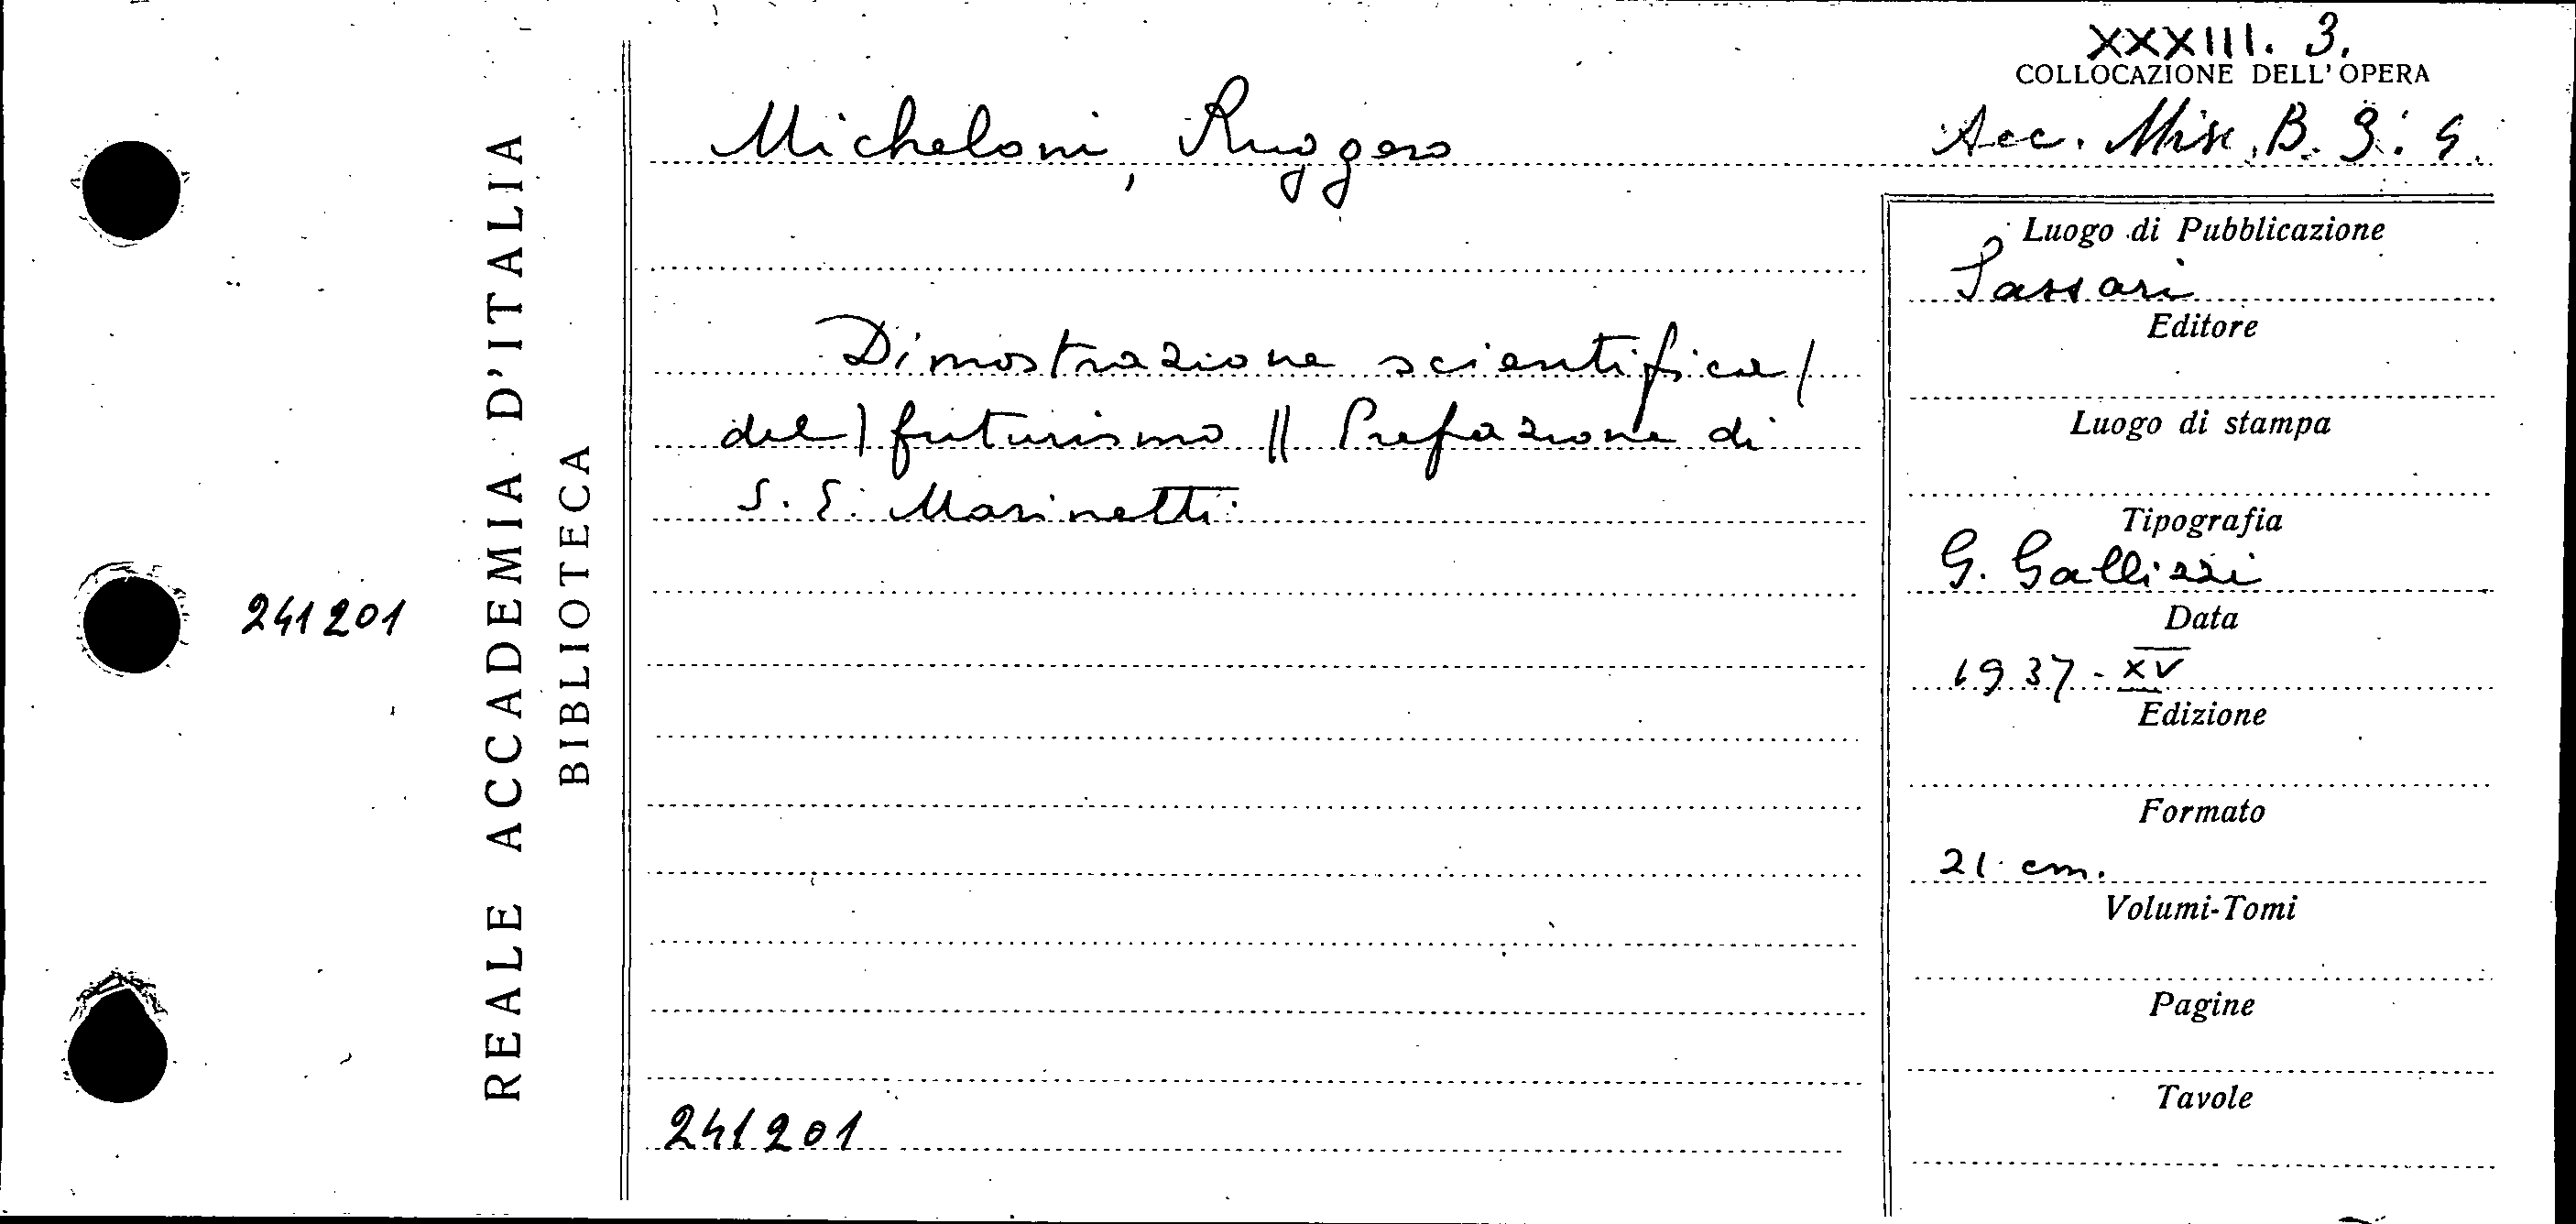 XXXIII. 3.
COLLOCAZIONE DELL'OPERA
Micheloni, Ruggero
Acc. Misc. B. 9: 9.
REALE ACCADEMIA D'ITALIA
BIBLIOTECA
241201
Dimostrazione scientifica /
del | futurismo || Prefazione di
S. E. Marinetti.
241201
Luogo di Pubblicazione
Sassari
Editore
Luogo di stampa
Tipografia
G. Gallizzi
Data
1937 - XV
Edizione
Formato
21 cm.
Volumi-Tomi
Pagine
Tavole